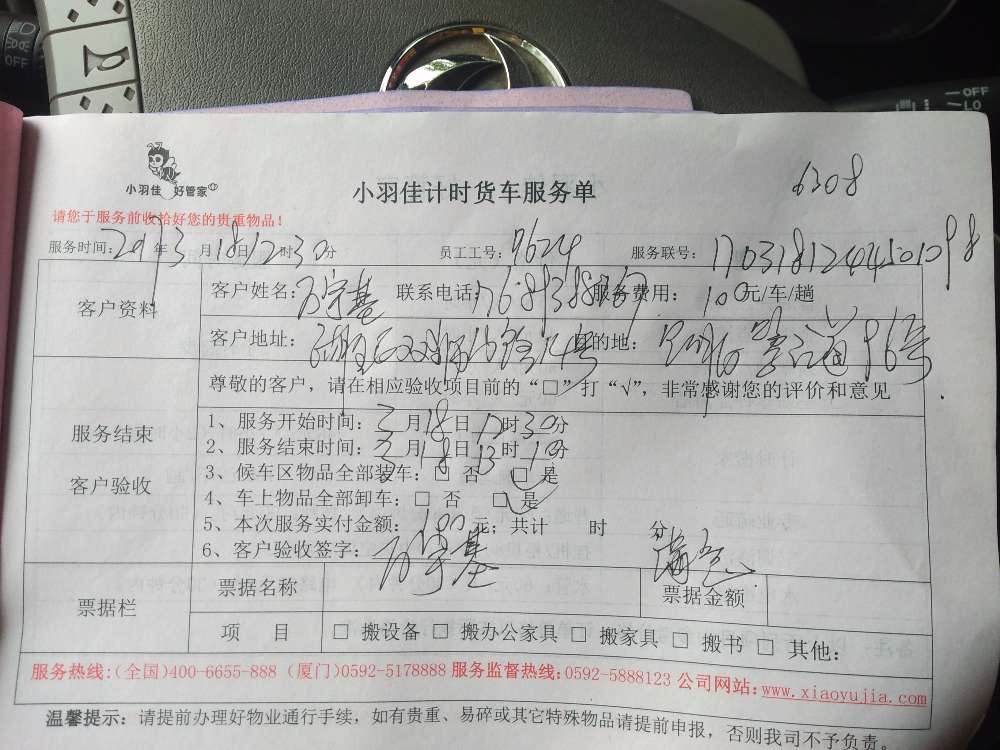 OFF
OFF
LO
小羽佳 好管家
小羽佳计时货车服务单
6308
请您于服务前收拾好您的贵重物品！
服务时间：2017年3月18日12时30分 员工工号：9624 服务联号：
客户资料
客户姓名： 联系电话： 服务费用：100元/车/趟
客户地址： 目的地：
尊敬的客户，请在相应验收项目前的“□”打“√”，非常感谢您的评价和意见
服务结束
客户验收
1、服务开始时间：3月18日12时30分
2、服务结束时间：3月18日13时10分
3、候车区物品全部装车：□ 否 □ 是
4、车上物品全部卸车：□ 否 □ 是
5、本次服务实付金额：100元；共计 时 分
6、客户验收签字： 满意
票据栏
票据名称 票据金额
项 目 □ 搬设备 □ 搬办公家具 □ 搬家具 □ 搬书 □ 其他：
服务热线：(全国)400-6655-888 (厦门)0592-5178888 服务监督热线：0592-5888123 公司网站：www.xiaoyujia.com
温馨提示：请提前办理好物业通行手续，如有贵重、易碎或其它特殊物品请提前申报，否则我司不予负责。